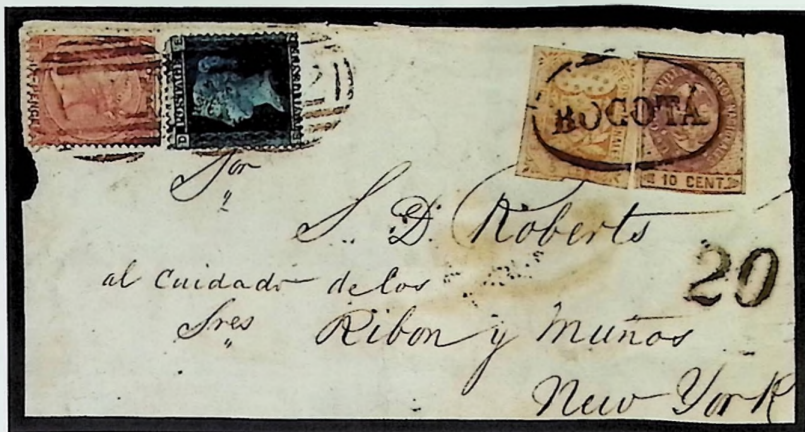 POSTAGE
BOGOTÁ
10 CENT.
Sor
S. D. Roberts
20
al Cuidado de los
Sres Ribon y Muños
New York